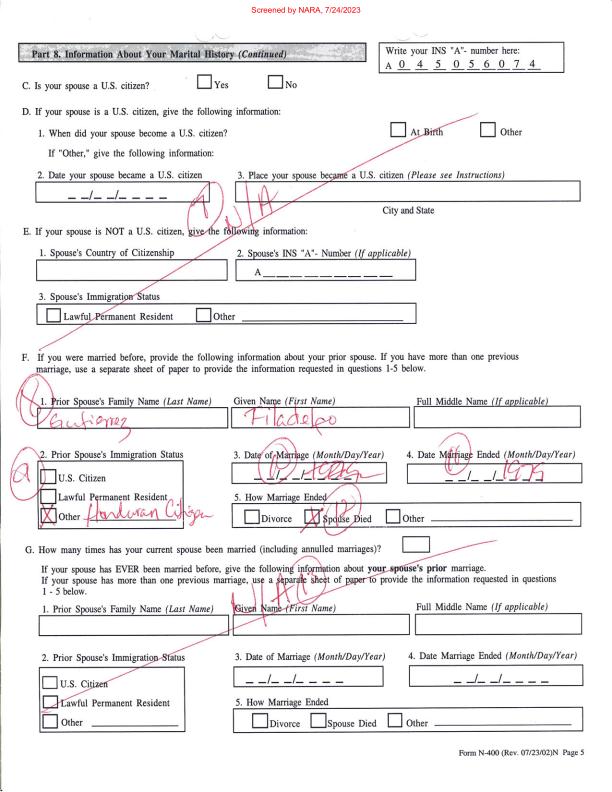 Screened by NARA, 7/24/2023
Part 8. Information About Your Marital History (Continued)
Write your INS "A"- number here:
A 0 4 5 0 5 6 0 7 4
C. Is your spouse a U.S. citizen? Yes No
D. If your spouse is a U.S. citizen, give the following information:
1. When did your spouse become a U.S. citizen? At Birth Other
If "Other," give the following information:
2. Date your spouse became a U.S. citizen 3. Place your spouse became a U.S. citizen (Please see Instructions)
_ _/_ _/_ _ _ _
N/A
City and State
E. If your spouse is NOT a U.S. citizen, give the following information:
1. Spouse's Country of Citizenship 2. Spouse's INS "A"- Number (If applicable)
A _ _ _ _ _ _ _ _ _
3. Spouse's Immigration Status
Lawful Permanent Resident Other
F. If you were married before, provide the following information about your prior spouse. If you have more than one previous
marriage, use a separate sheet of paper to provide the information requested in questions 1-5 below.
1. Prior Spouse's Family Name (Last Name) Given Name (First Name) Full Middle Name (If applicable)
Gutierrez Filadelpo
2. Prior Spouse's Immigration Status 3. Date of Marriage (Month/Day/Year) 4. Date Marriage Ended (Month/Day/Year)
U.S. Citizen _ _/_ _/ _ _/_ _/1979
Lawful Permanent Resident 5. How Marriage Ended
X Other Honduran Citizen Divorce X Spouse Died Other
G. How many times has your current spouse been married (including annulled marriages)?
If your spouse has EVER been married before, give the following information about your spouse's prior marriage.
If your spouse has more than one previous marriage, use a separate sheet of paper to provide the information requested in questions
1 - 5 below.
N/A
1. Prior Spouse's Family Name (Last Name) Given Name (First Name) Full Middle Name (If applicable)
2. Prior Spouse's Immigration Status 3. Date of Marriage (Month/Day/Year) 4. Date Marriage Ended (Month/Day/Year)
U.S. Citizen _ _/_ _/_ _ _ _ _ _/_ _/_ _ _ _
Lawful Permanent Resident 5. How Marriage Ended
Other Divorce Spouse Died Other
Form N-400 (Rev. 07/23/02)N Page 5